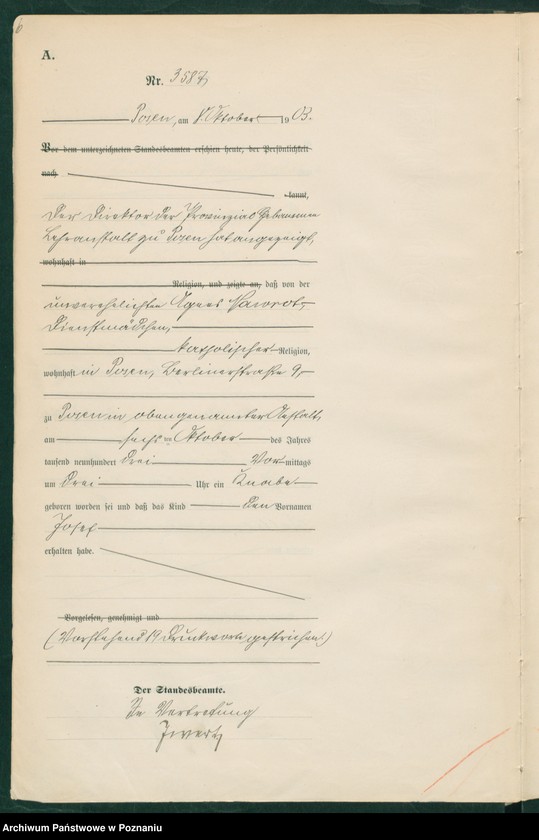 6
A.
Nr. 3587
Posen, am 8. Oktober 1903.
Vor dem unterzeichneten Standesbeamten erschien heute, der Persönlichkeit
nach
kannt,
Der Direktor der Provinzial Hebammen
Lehranstalt zu Posen hat angezeigt,
wohnhaft in
Religion, und zeigte an, daß von der
unverehelichten Agnes Nawrot,
Dienstmädchen,
katholischer Religion,
wohnhaft in Posen, Berlinerstraße 9,
zu Posen in obengenannter Anstalt
am sechsten Oktober des Jahres
tausend neunhundert drei Vormittags
um drei Uhr ein Knabe
geboren worden sei und daß das Kind den Vornamen
Josef
erhalten habe.
Vorgelesen, genehmigt und
(Vorstehend 19 Druckworte gestrichen)
Der Standesbeamte.
In Vertretung
Archiwum Państwowe w Poznaniu